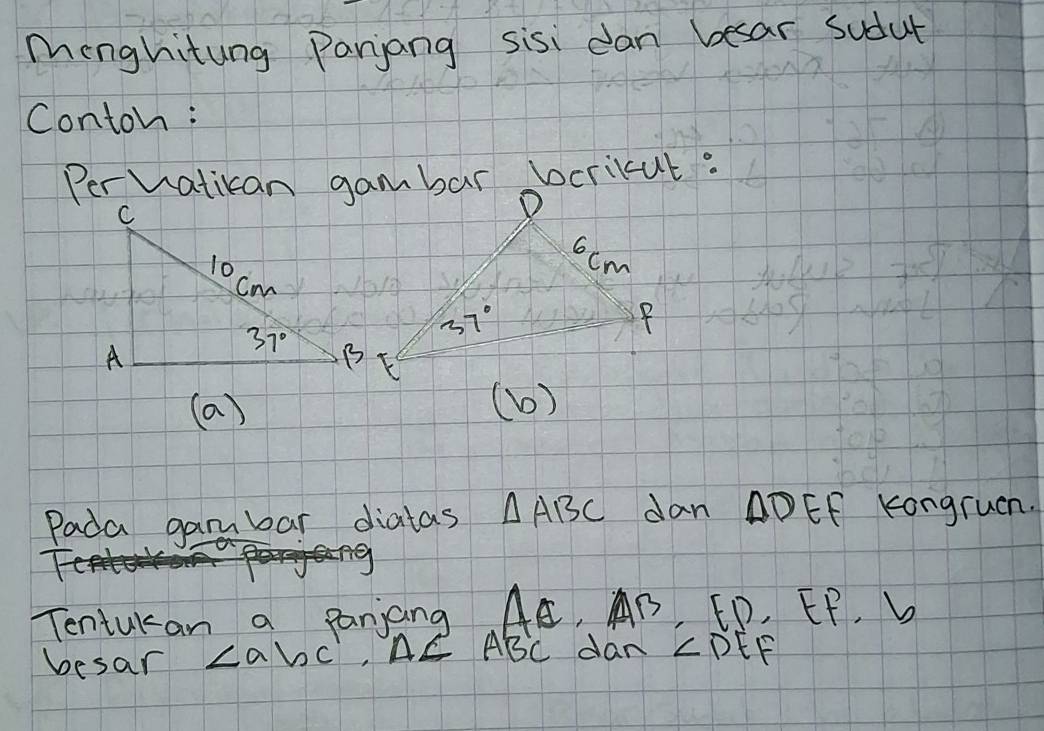 Menghitung Panjang sisi dan besar sudut
Contoh :
Perhatikan gambar berikut :
C
D
10 cm
6 cm
37°
37°
F
A
B
E
(a)
(b)
Pada gambar diatas Δ ABC dan ΔDEF kongruen.
Tentukan a panjang AC, AB, ED, EF, b
besar ∠abc, ABC dan ∠DEF